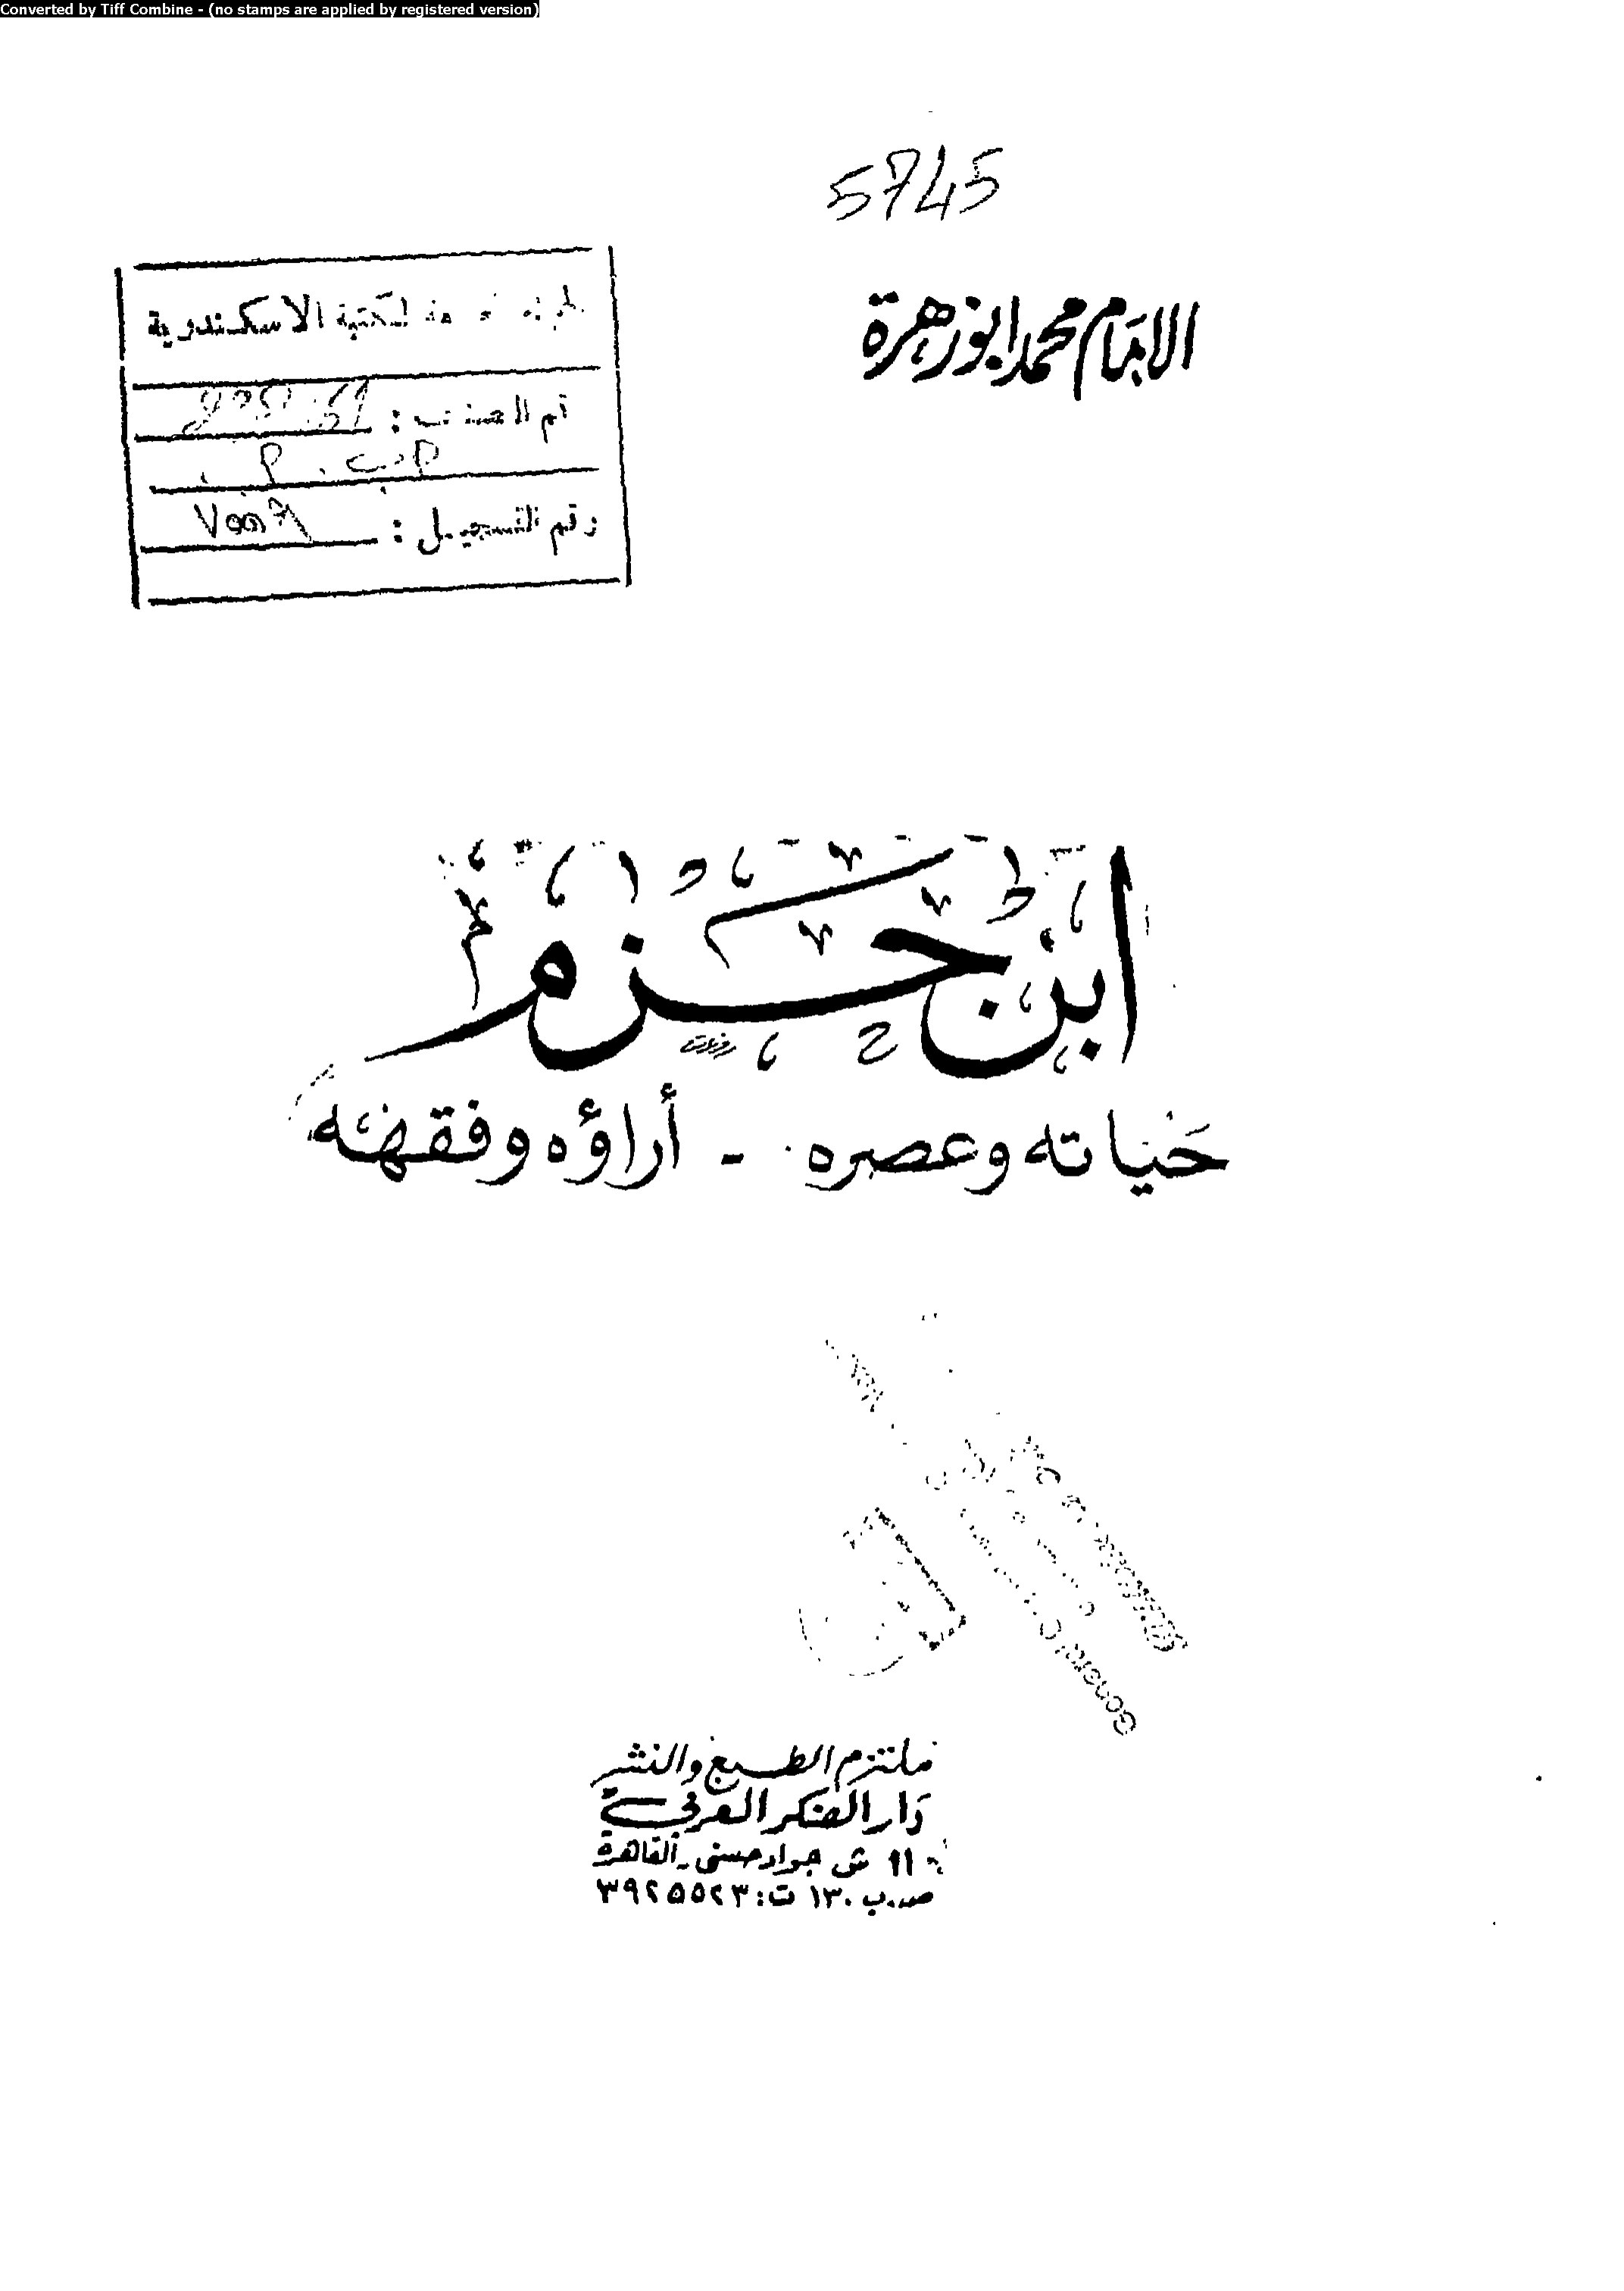 Converted by Tiff Combine - (no stamps are applied by registered version)
5745
الامام محمد ابوزهرة
لمكتبة الاسكندرية
رقم التسجيل :
ابن حزم
حياته وعصره - أراؤه وفقهه
General
ملتزم الطبع والنشر
دار الفكر العربي
١١ ش جواد حسنى - القاهرة
ص.ب ١٣٠ ت: ٣٩٢٥٥٢٣